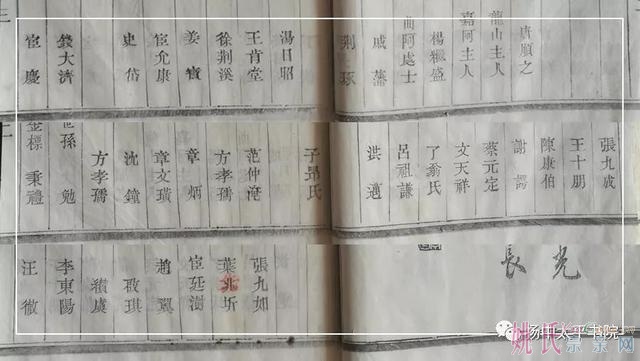 唐順之
龍山主人
嘉阿主人
楊繼盛
曲阿處士
戚藩
荆琢
湯日昭
王肯堂
徐荆溪
姜寶
宦允康
史岱
錢大濟
宦慶
張九成
王十朋
陳康伯
謝諤
蔡元定
文天祥
了翁氏
呂祖謙
洪邁
子昂氏
范仲淹
方孝孺
章炳
章文璜
沈鐘
方孝孺
孫勉
金標 秉禮
光長
張九如
葉
宦廷
趙翼
琪
李東陽
汪
扬中太平书院
姚氏宗亲网